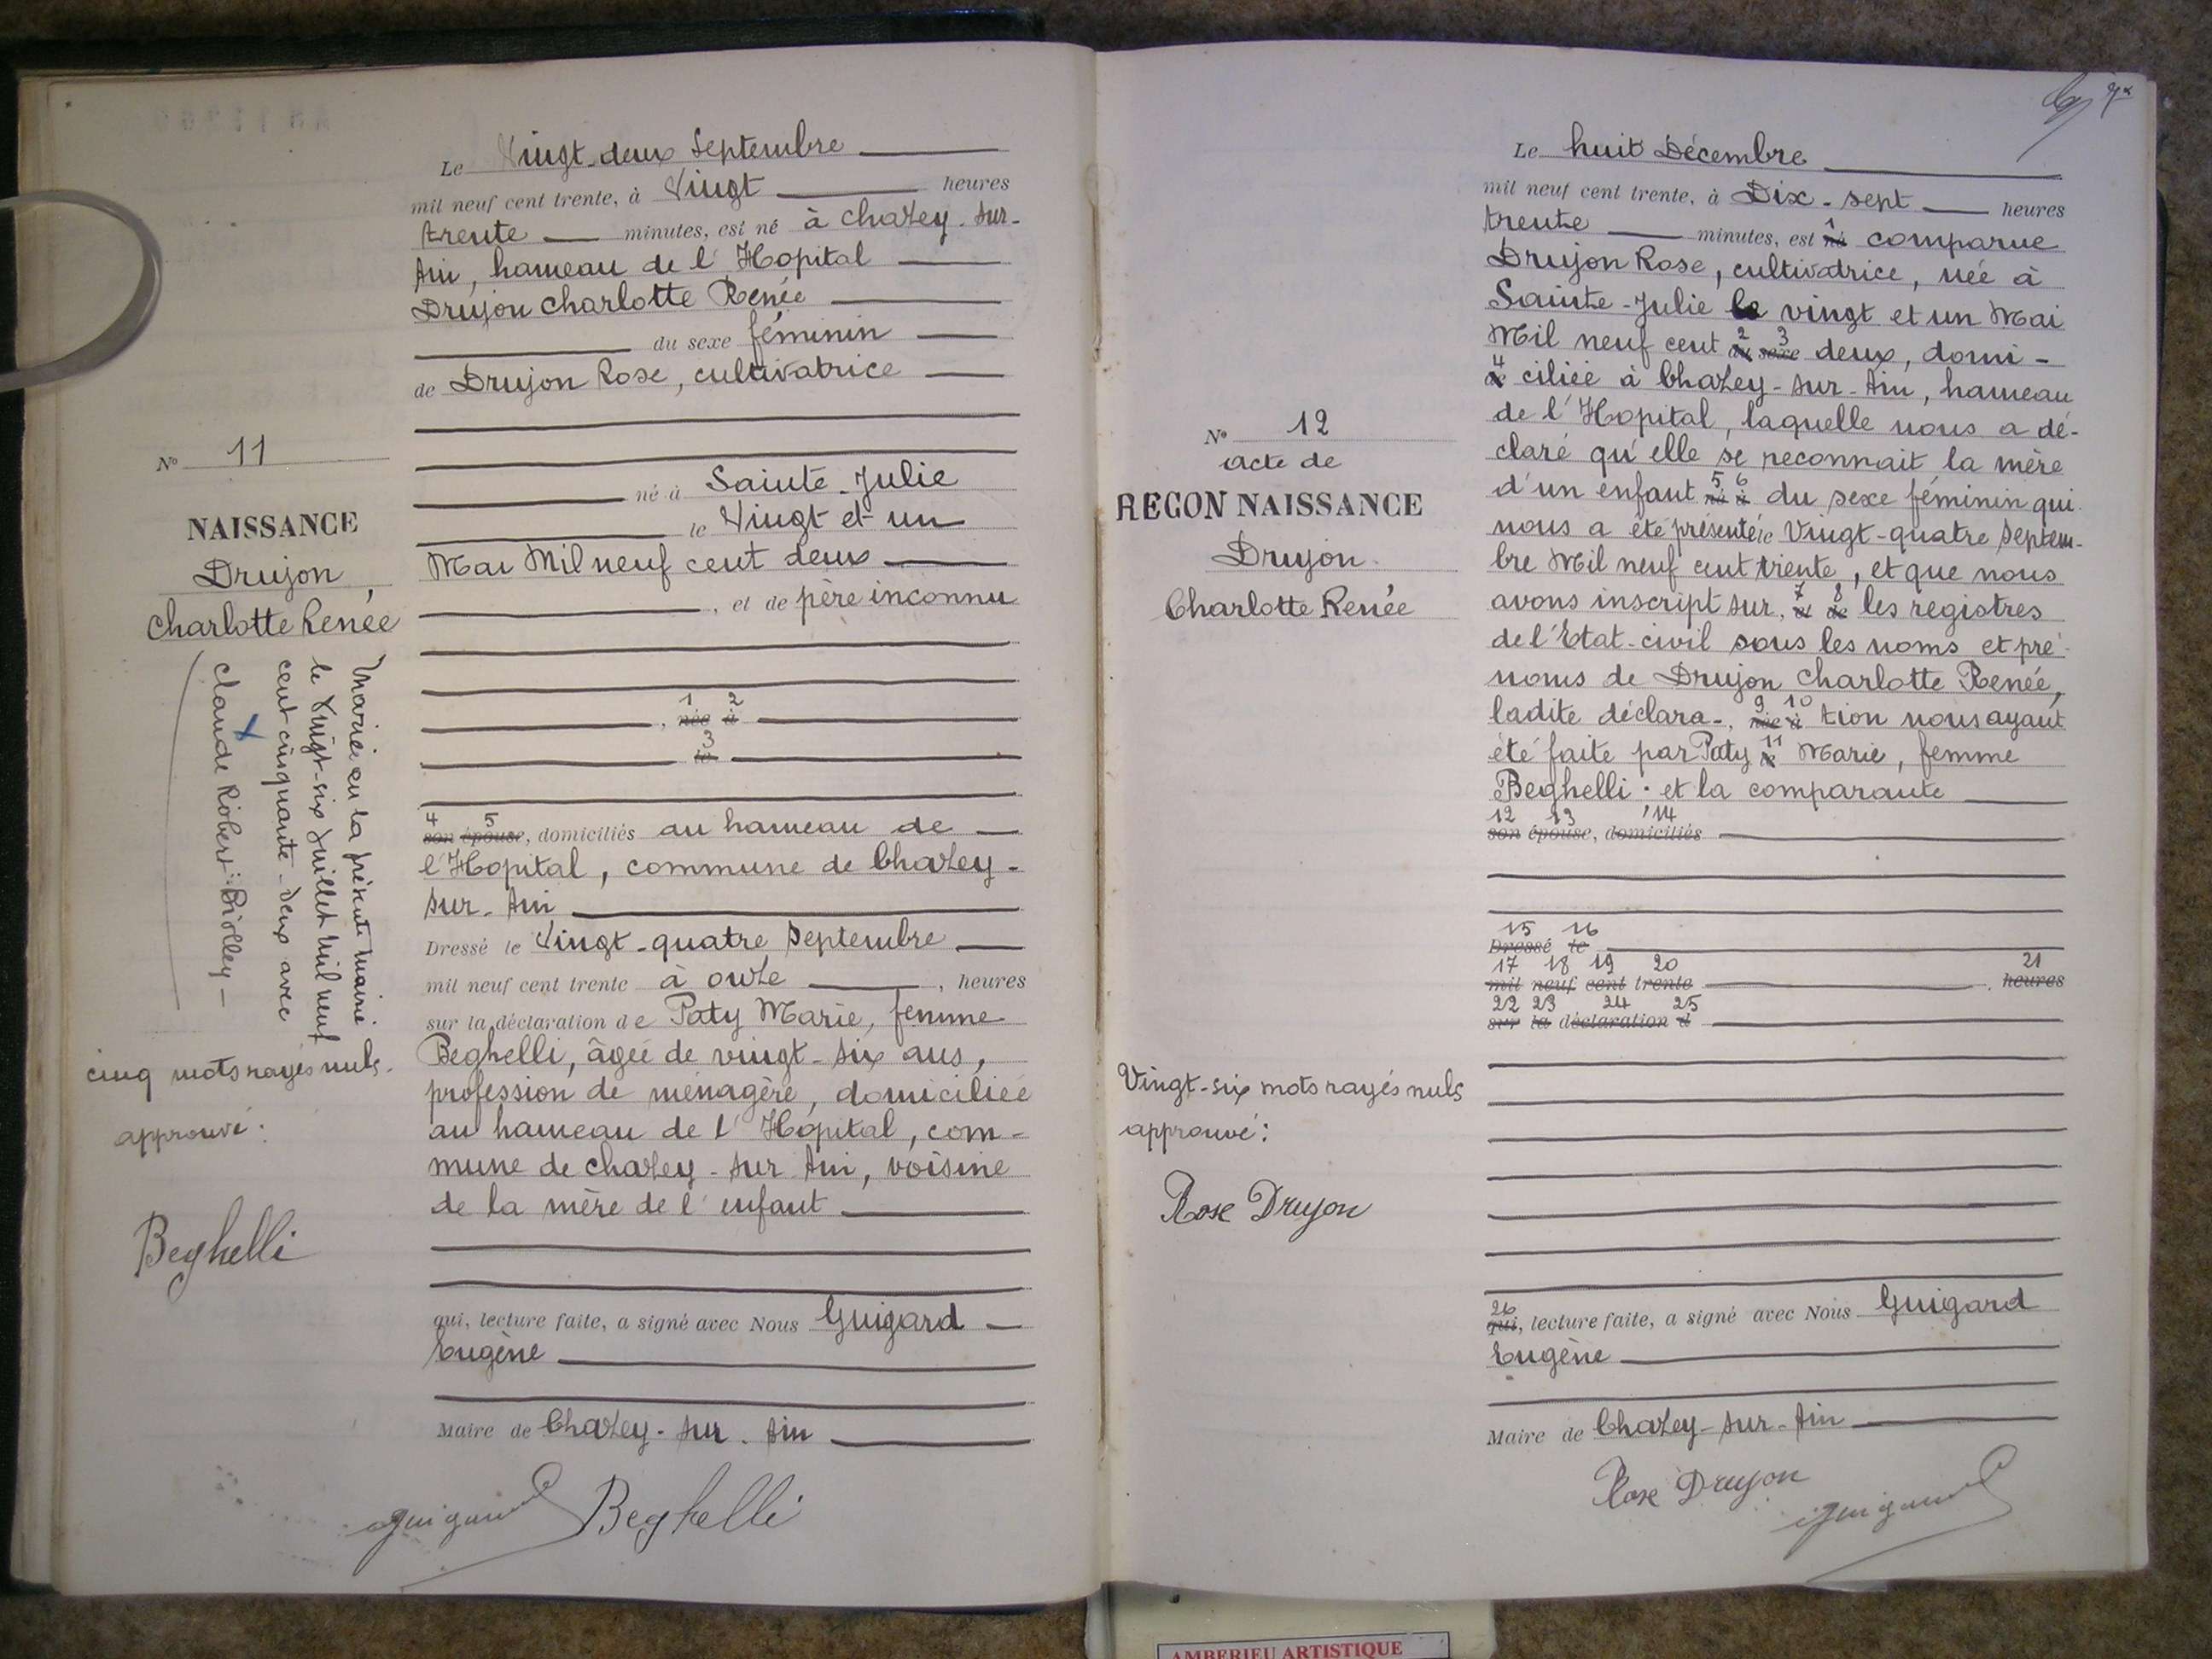 Le Vingt-deux Septembre
mil neuf cent trente, à Vingt heures
trente minutes, est né à Chazey-sur-
Ain, hameau de l'Hopital
Drujon Charlotte Renée
du sexe féminin
de Drujon Rose, cultivatrice
né à Sainte-Julie
le Vingt et un
Mai Mil neuf cent deux
, et de père inconnu
1 2
, née à
3
le
4 5
son épouse, domiciliés au hameau de
l'Hopital, commune de Chazey-
sur-Ain
Dressé le Vingt-quatre Septembre
mil neuf cent trente à onze , heures
sur la déclaration de Paty Marie, femme
Beghelli, âgée de vingt-six ans,
profession de ménagère, domiciliée
au hameau de l'Hopital, com-
mune de Chazey-sur Ain, voisine
de la mère de l'enfant
qui, lecture faite, a signé avec Nous Guigard
Eugène
Maire de Chazey-sur-Ain
Guigard Beghelli
N° 11
NAISSANCE
Drujon,
Charlotte Renée
Mariée en la présente Mairie
le Vingt-six Juillet Mil neuf
cent cinquante-deux avec
Claude Robert Biolley
cinq mots rayés nuls.
approuvé :
Beghelli
Le huit Décembre
mil neuf cent trente, à Dix-sept heures
trente minutes, est né 1 comparue
Drujon Rose, cultivatrice, née à
Sainte-Julie le vingt et un Mai
Mil neuf cent du 2 sexe 3 deux, domi-
4 ciliée à Chazey-sur-Ain, hameau
de l'Hopital, laquelle nous a dé-
claré qu'elle se reconnait la mère
d'un enfant né 5 à 6 du sexe féminin qui
nous a été présenté le Vingt-quatre Septem-
bre Mil neuf cent trente, et que nous
avons inscript sur, 7 8 les registres
de l'Etat-civil sous les noms et pré-
noms de Drujon Charlotte Renée,
ladite déclara-, née 9 à 10 tion nous ayant
été faite par Paty le 11 Marie, femme
Beghelli ; et la comparante
12 13 14
son épouse, domiciliés
15 16
Dressé le
17 18 19 20 21
mil neuf cent trente , heures
22 23 24 25
sur la déclaration d
26
qui, lecture faite, a signé avec Nous Guigard
Eugène
Maire de Chazey-sur-Ain
Rose Drujon
Guigard
N° 12
acte de
RECONNAISSANCE
Drujon
Charlotte Renée
Vingt-six mots rayés nuls
approuvé :
Rose Drujon
AMBERIEU ARTISTIQUE